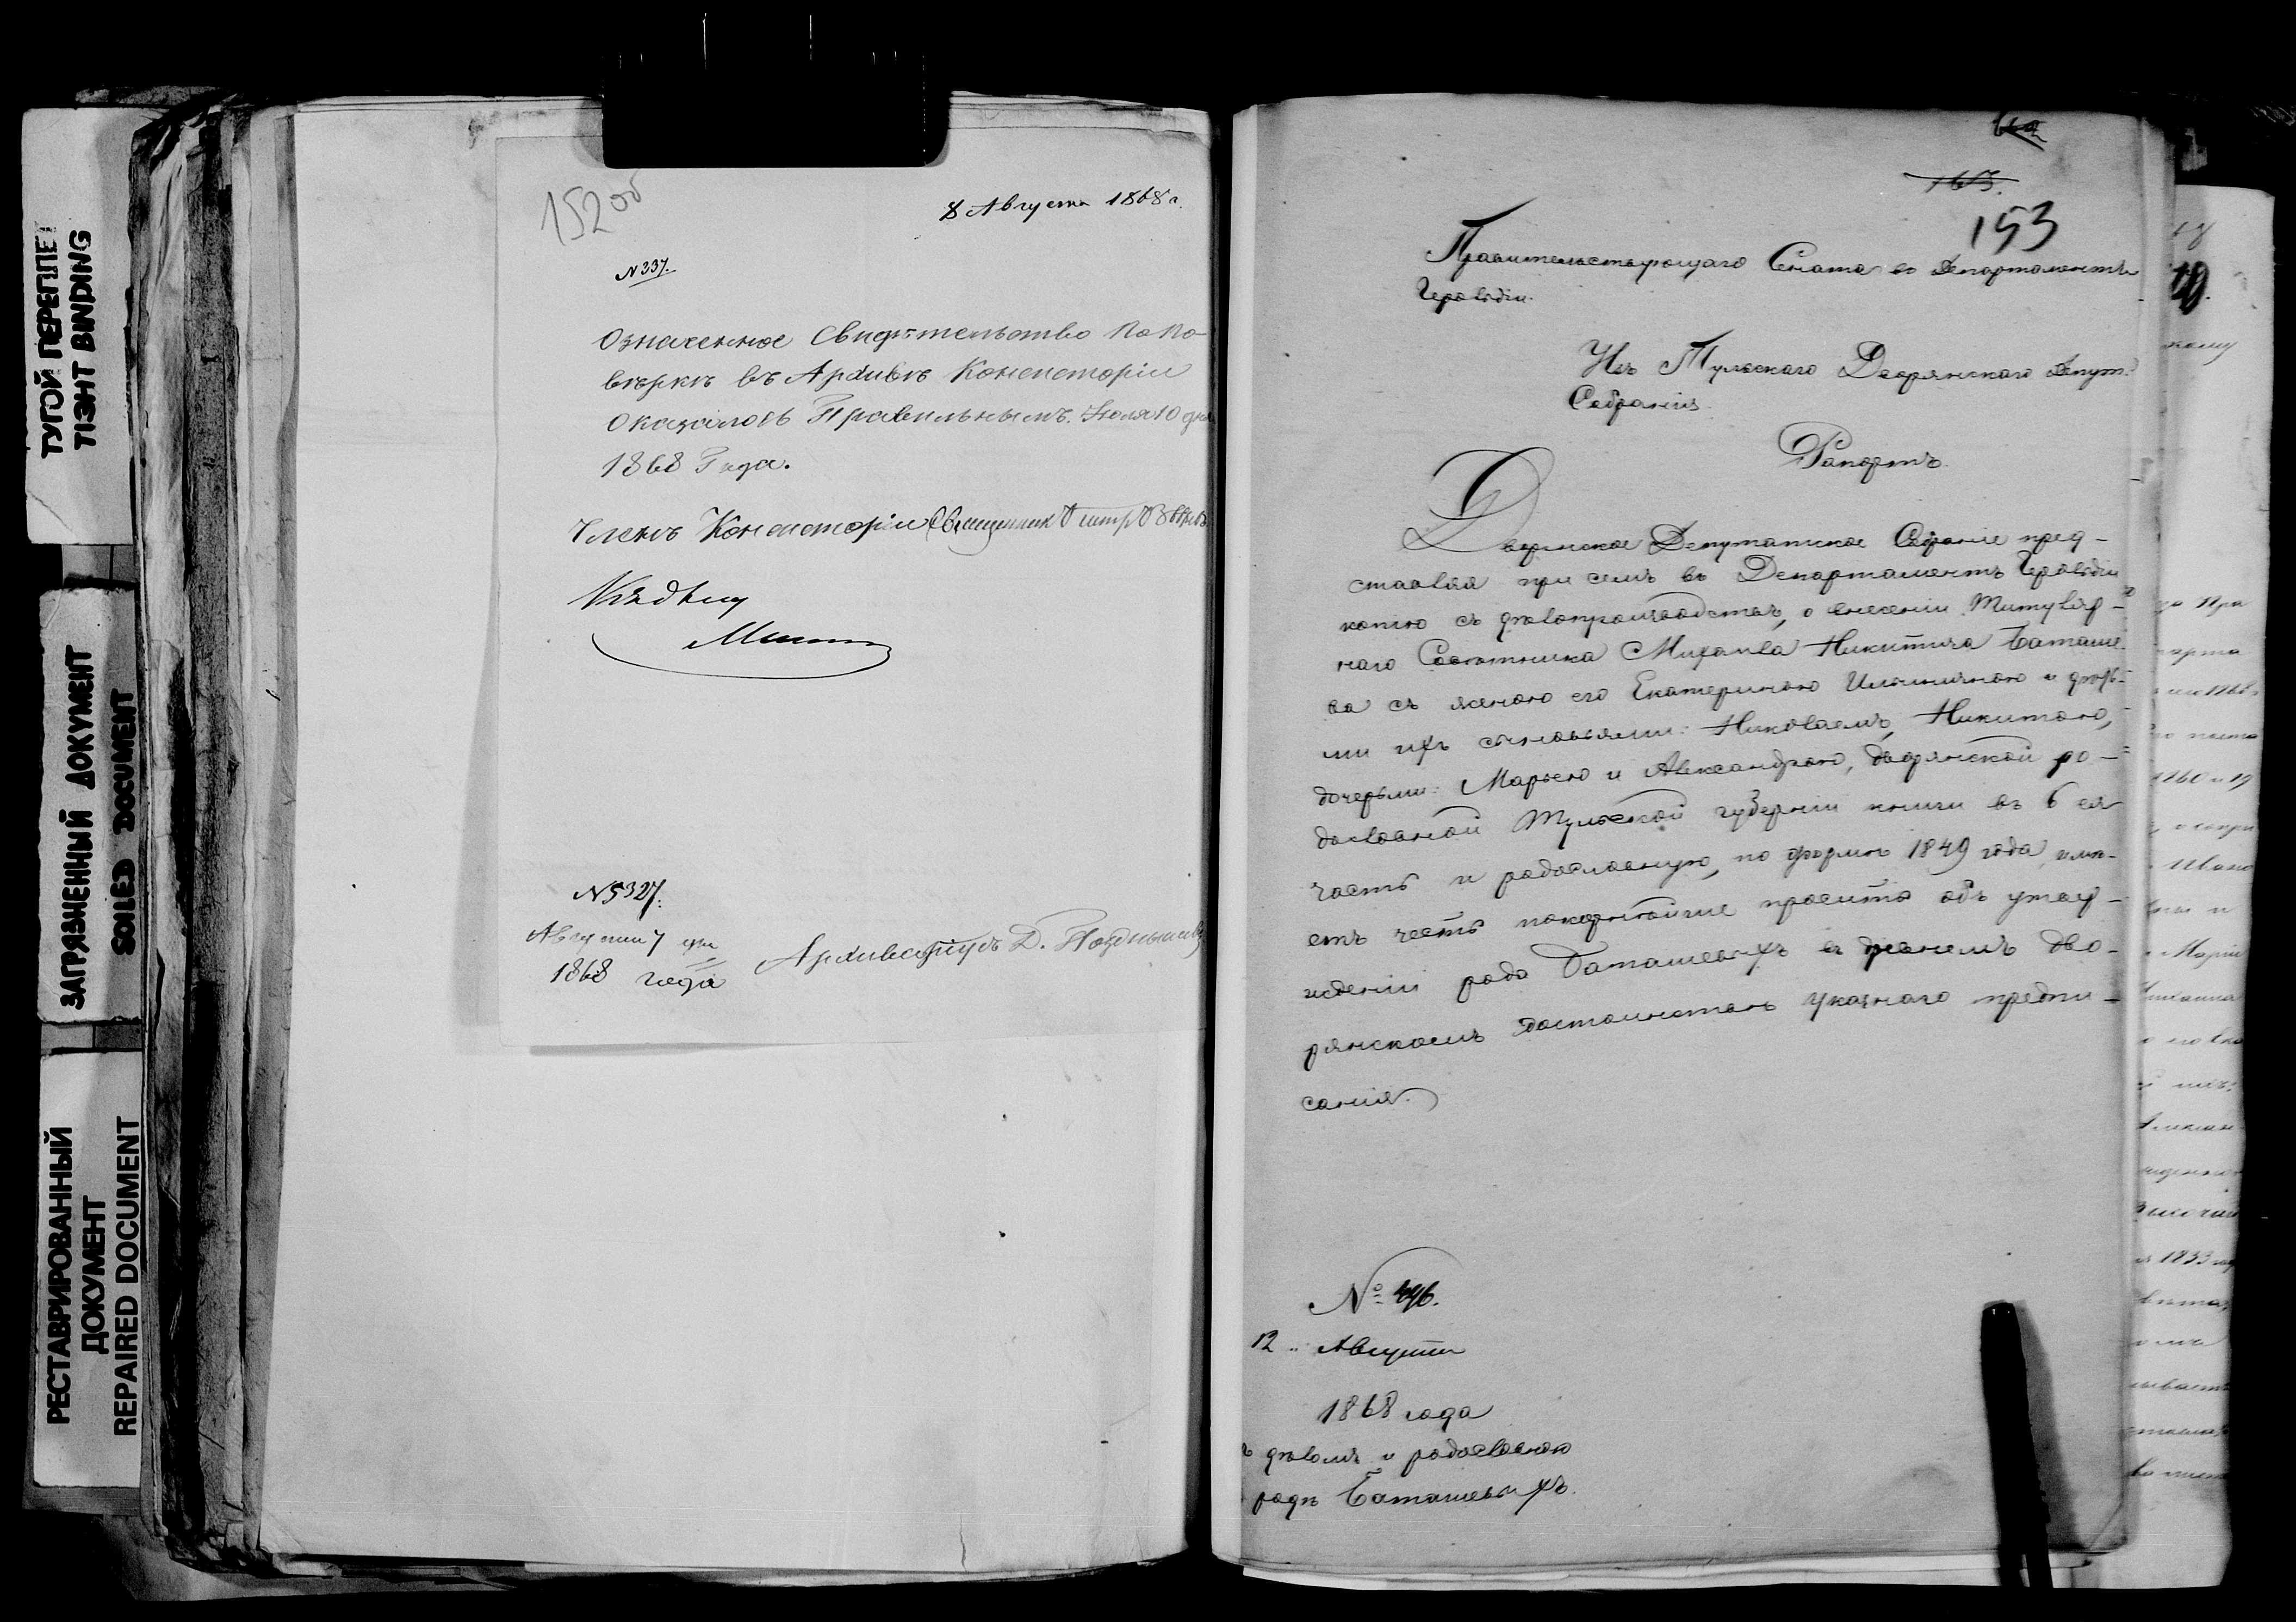 ТУГОЙ ПЕРЕПЛЕТ
TIGHT BINDING
ЗАГРЯЗНЕННЫЙ ДОКУМЕНТ
SOILED DOCUMENT
РЕСТАВРИРОВАННЫЙ
ДОКУМЕНТ
REPAIRED DOCUMENT
152 об
8 Августа 1868 г.
N 337.
Означенное Свидѣтельство По По-
вѣркѣ въ Архивѣ Консисторіи
оказалось Правильнымъ. Июля 10 дня
1868 Года.
Членъ Консисторіи Священник
N 5327.
Августа 7 дня
1868 года
Архиваріусъ Д. Позднышевъ
153
Правительствующаго Сената въ Департаментъ
Герольдіи.
Изъ Тульскаго Дворянскаго Депут.
Собранія.
Рапортъ.
Дворянское Депутатское Собраніе пред-
ставляя при семъ въ Департаментъ Герольдіи
копію съ дѣлопроизводства, о внесеніи Титуляр-
наго Совѣтника Михаила Никитича Баташе-
ва съ женою его Екатериною Ильиничною и дѣть-
ми ихъ сыновьями: Николаемъ, Никитою,
дочерьми: Марьею и Александрою, дворянской ро-
дословной Тульской губерніи книги въ 6 ея
часть и родословную, по формѣ 1849 года, имѣ-
етъ честь покорнѣйше просить объ утвер-
жденіи рода Баташевыхъ въ древнемъ дво-
рянскомъ достоинствѣ указнаго предпи-
санія.
№ 496.
12 Августа
1868 года
дѣломъ и родословною
родѣ Баташевыхъ.